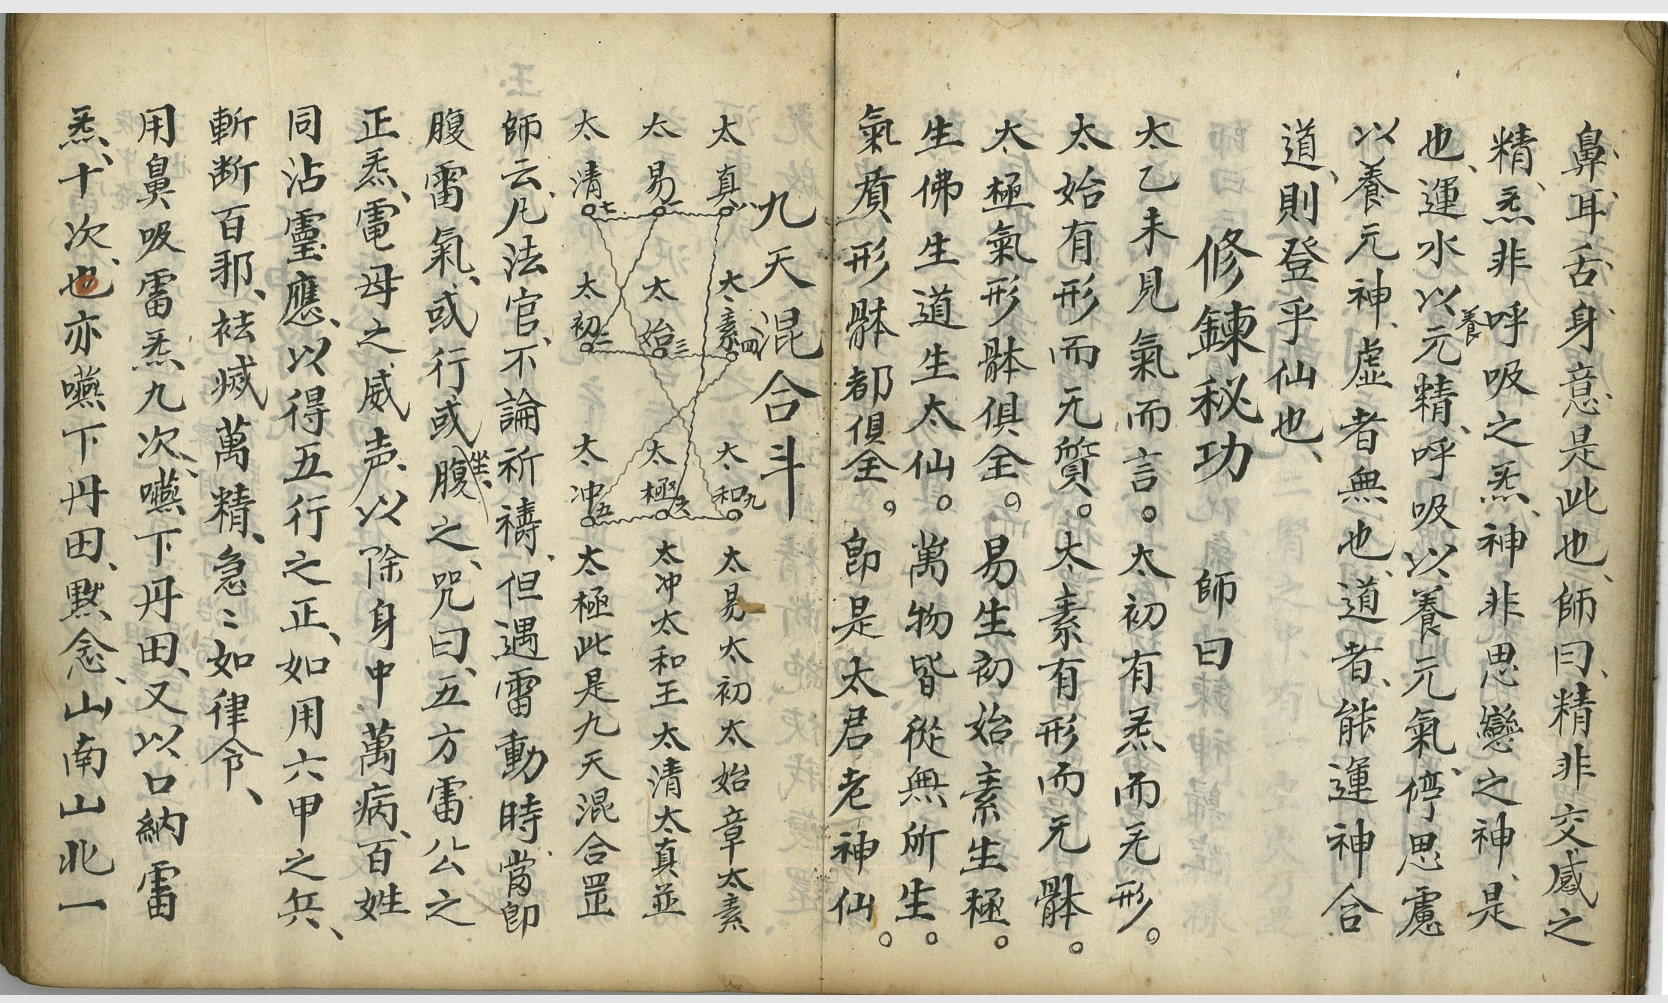 鼻、耳、舌、身、意、是此也、師曰、精非交感之
精、炁非呼吸之炁、神非思戀之神、是
也、運水以養元精、呼吸以養元氣、停思慮
以養元神、虛者無也、道者、能運神合
道、則登乎仙也、
修鍊秘功　師曰
太乙未見氣而言。太初有炁而无形。
太始有形而无質。太素有形而无骵
太極氣形骵俱全。易生初始素生極。
生佛生道生太仙。萬物皆從無所生。
氣質形骵都俱全。即是太君老神仙。
九天混合斗
太真八　太素四　太和九　太易太初太始章太素
太易一　太始三　太極六　太冲太和王太清太真並
太清七　太初二　太冲五　太極此是九天混合罡
師云、凡法官、不論祈禱、但遇雷動時、當即
腹雷氣、或行或坐、腹之、咒曰、五方雷公之
正炁、電母之威声、以除身中萬病、百姓
同沾靈應、以得五行之正、如用六甲之兵、
斬断百邪、祛滅萬精、急〻如律令、
用鼻吸雷炁九次、嚥下丹田、又以口納雷
炁、十次、也亦嚥下丹田、黙念、山南山北一